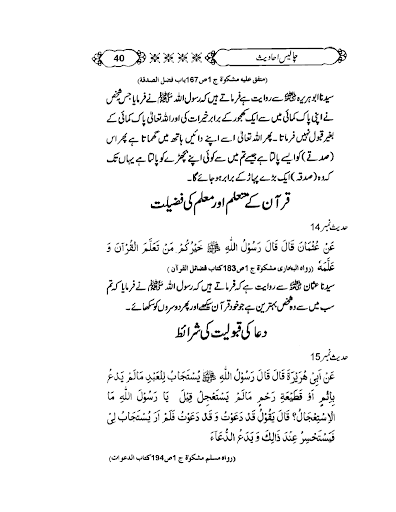 چالیس احادیث
40
(متفق علیہ مشکوۃ ج 1ص167باب فضل الصدقۃ)
سیدنا ابوہریرہ ﷜ سے روایت ہے فرماتے ہیں کہ رسول اللہ ﷺ نے فرمایا جس شخص
نے اپنی پاک کمائی میں سے ایک کھجور کے برابر خیرات کی اور اللہ تعالی پاک کمائی کے
بغیر قبول نہیں فرماتا۔ پھر اللہ تعالی اسے اپنے دائیں ہاتھ میں گھماتا ہے پھر اس
(صدقے) کو ایسے پالتا ہے جیسے تم میں سے کوئی اپنے بچھڑے کو پالتا ہے یہاں تک
کہ وہ (صدقہ) ایک بڑے پہاڑ کے برابر ہو جائے گا۔
قرآن کے متعلم اور معلم کی فضیلت
حدیث نمبر 14
عَنْ عُثْمَانَ قَالَ قَالَ رَسُوْلُ اللهِ ﷺ خَيْرُكُمْ مَنْ تَعَلَّمَ الْقُرْآنَ وَ
عَلَّمَهٗ (رواہ البخاری مشکوۃ ج 1ص183کتاب فضائل القرآن)
سیدنا عثمان ﷜ سے روایت ہے کہ فرماتے ہیں کہ رسول اللہ ﷺ نے فرمایا کہ تم
سب میں سے وہ شخص بہترین ہے جو خود قرآن سیکھے اور پھر دوسروں کو سکھائے۔
دعا کی قبولیت کی شرائط
حدیث نمبر 15
عَنْ اَبِيْ هُرَيْرَةَ قَالَ قَالَ رَسُوْلُ اللهِ ﷺ يُسْتَجَابُ لِلْعَبْدِ مَالَمْ يَدْعُ
بِاِثْمٍ اَوْ قَطِيْعَةِ رَحِمٍ مَالَمْ يَسْتَعْجِلْ قِيْلَ يَا رَسُوْلَ اللهِ مَا
الْاِسْتِعْجَالُ؟ قَالَ يَقُوْلُ قَدْ دَعَوْتُ وَ قَدْ دَعَوْتُ فَلَمْ اَرَ يُسْتَجَابُ لِيْ
فَيَسْتَحْسِرُ عِنْدَ ذَالِكَ وَ يَدَعُ الدُّعَآءَ
(رواہ مسلم مشکوۃ ج 1ص194کتاب الدعوات)